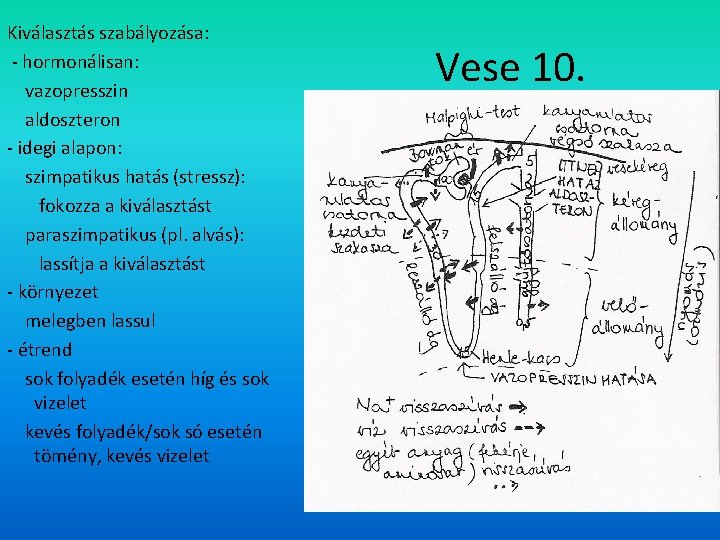 Kiválasztás szabályozása:
- hormonálisan:
vazopresszin
aldoszteron
- idegi alapon:
szimpatikus hatás (stressz):
fokozza a kiválasztást
paraszimpatikus (pl. alvás):
lassítja a kiválasztást
- környezet
melegben lassul
- étrend
sok folyadék esetén híg és sok
vizelet
kevés folyadék/sok só esetén
tömény, kevés vizelet
Vese 10.
Malpighi-test
kanyarulatos
csatorna
végső szakasza
Bowman
tok
ér
kanya-
rulatos
csatorna
kezdeti
szakasza
ITTNEI
HATÁS
ALDOSZ-
TERON
vesekéreg
kéreg-
állomány
velő-
állomány
leszálló ág
felszálló ág
nyomás
Henle-kacs
VAZOPRESSZIN HATÁSA
Na+ visszaszívás
víz visszaszívás
egyéb anyag (fehérje,
aminosav) visszaszívás